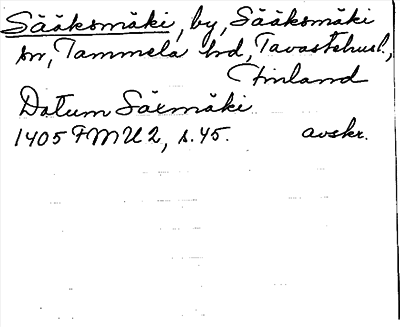 Sääksmäki, by, Sääksmäki
sn, Tammela hd, Tavastehusl.,
Finland
Datum Säxmäki
1405 FMU 2, s. 45. avskr.